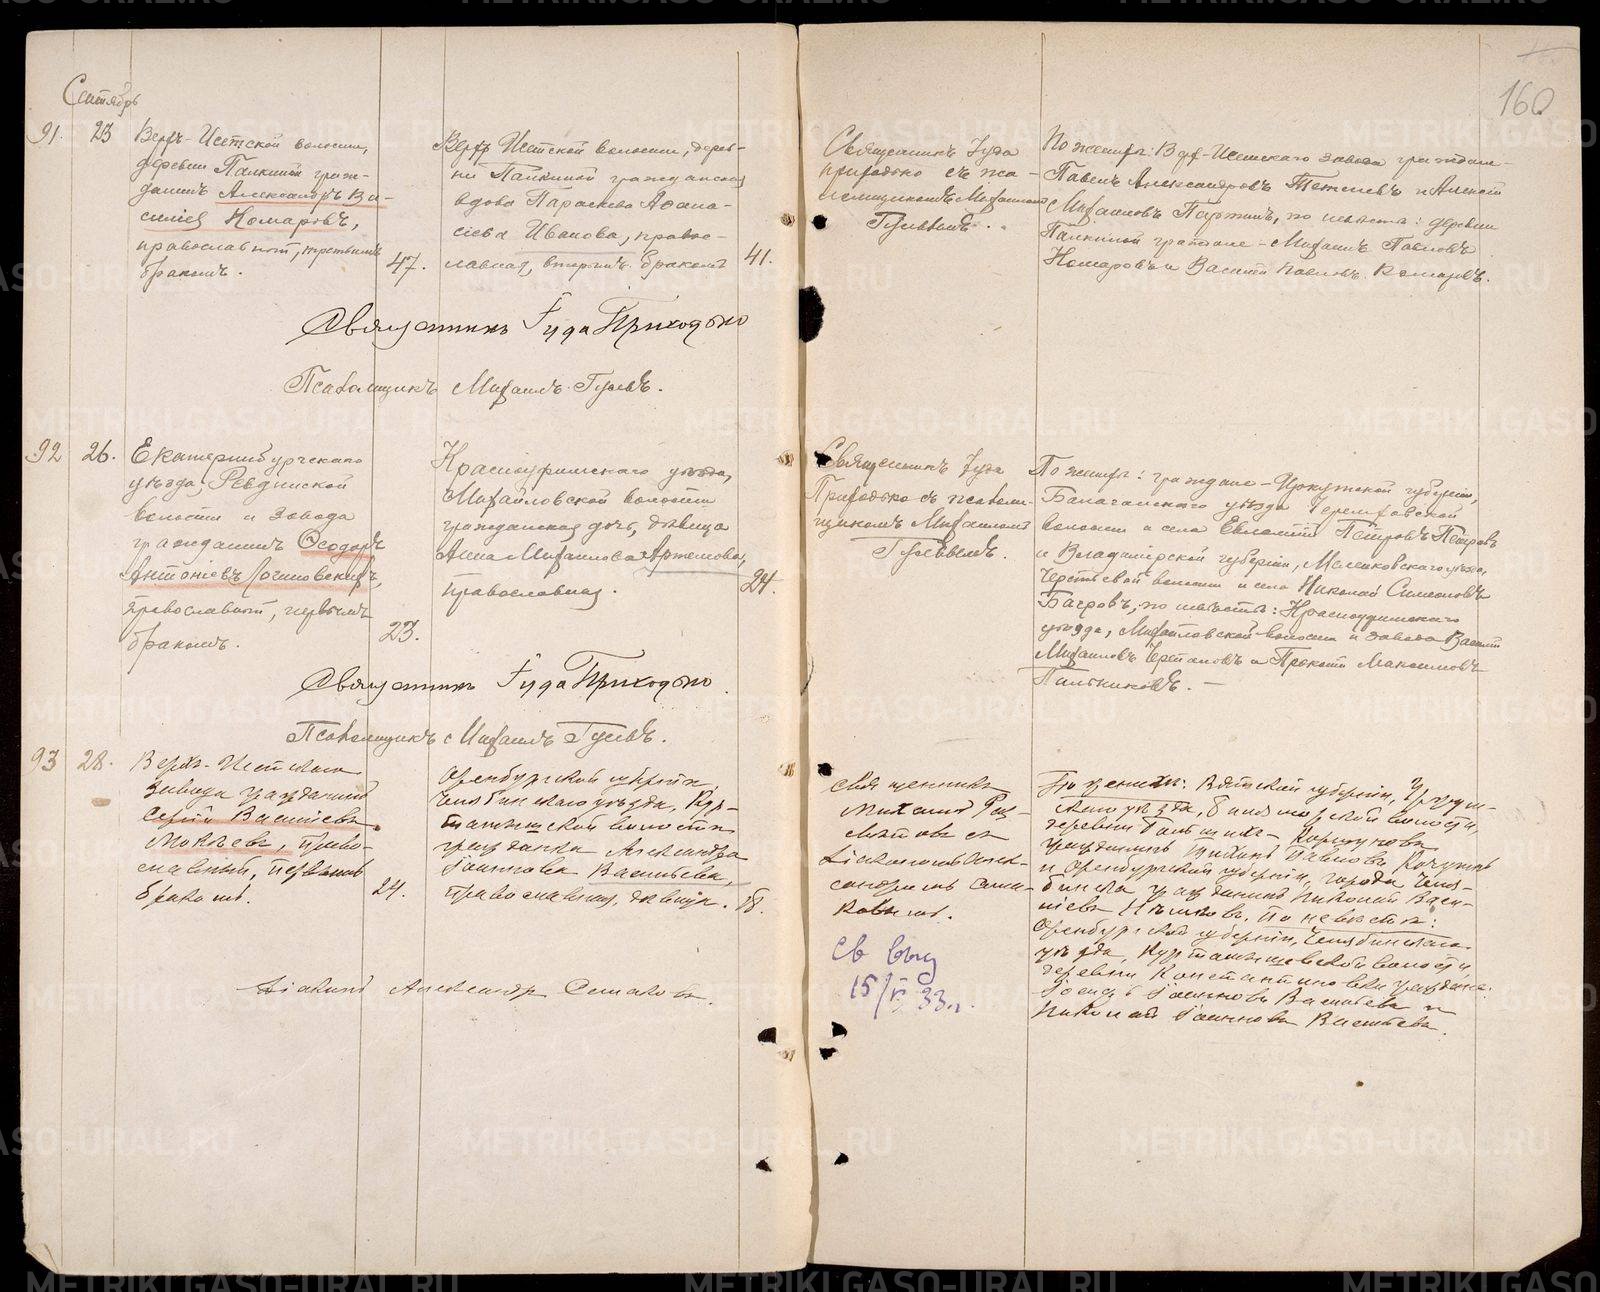 160
Сентябрь
91. 23
Верхъ-Исетской волости,
деревни Палкиной граж-
данинъ Александръ Ва-
силіевъ Комаровъ,
православный, третьимъ
бракомъ.
47.
Верхъ Исетской волости, дерев-
ни Палкиной гражданская
вдова Параскева Афана-
сіева Иванова, право-
славная, вторымъ бракомъ
41.
Священникъ Іуда
Приходько съ пса-
ломщикомъ Михаиломъ
Гулевымъ.
По женихѣ: Верх-Исетскаго завода граждане-
Павелъ Александровъ и Алексѣй
Михаиловъ по невѣстѣ: деревни
Палкиной граждане - Михаилъ Павловъ
Комаровъ и Василій Павловъ Комаровъ.
Священникъ Іуда Приходько
Псаломщикъ Михаилъ Гулевъ.
92 26.
Екатеринбургскаго
уѣзда, Ревдинской
волости и завода
гражданинъ Ѳеодоръ
Антоніевъ Логиновскихъ,
православный, первымъ
бракомъ.
23.
Красноуфимскаго уѣзда,
Михайловской волости
гражданская дочь, дѣвица
Анна Михаилова Артемова,
православная.
24.
Священникъ Іуда
Приходько съ псалом-
щикомъ Михаиломъ
Гулевымъ.
По женихѣ: граждане - Иркутской губерніи,
Балаганскаго уѣзда Черемховской
волости и села Евлампій Петровъ Петровъ
и Владимірской губерніи, Меленковскаго уѣзда,
волости и села Николай Симеоновъ
Багровъ, по невѣстѣ: Красноуфимскаго
уѣзда, Михайловской волости и завода Василій
Михаиловъ Черепановъ и Прокопій Максимовъ
Пальниковъ. —
Священникъ Іуда Приходько
Псаломщикъ Михаилъ Гулевъ.
93 28.
Верхъ-Исетскаго
завода гражданинъ
Сергій Василіевъ
Мокѣевъ, право-
славный, первымъ
бракомъ.
24.
Оренбургской губерніи,
Челябинскаго уѣзда, Кур-
тамышской волости
гражданка Александра
Іоаннова Васильева,
православная, дѣвица.
18.
Священникъ
Михаилъ
съ
діакономъ Алек-
сандромъ Сема-
ковымъ.
По женихѣ: Вятской губерніи, Уржум-
скаго уѣзда, волости,
деревни
гражданинъ Тихонъ Павловъ
и Оренбургской губерніи, города Челя-
бинска гражданинъ Николай Васи-
ліевъ по невѣстѣ:
Оренбургской губерніи, Челябинскаго
уѣзда, Куртамышевской волости,
деревни Константиновки граждане:
Іоаннъ Іоанновъ Васильевъ и
Николай Іоанновъ Васильевъ.
Св выд
15/V 33 г.
Діаконъ Александръ Семаковъ.